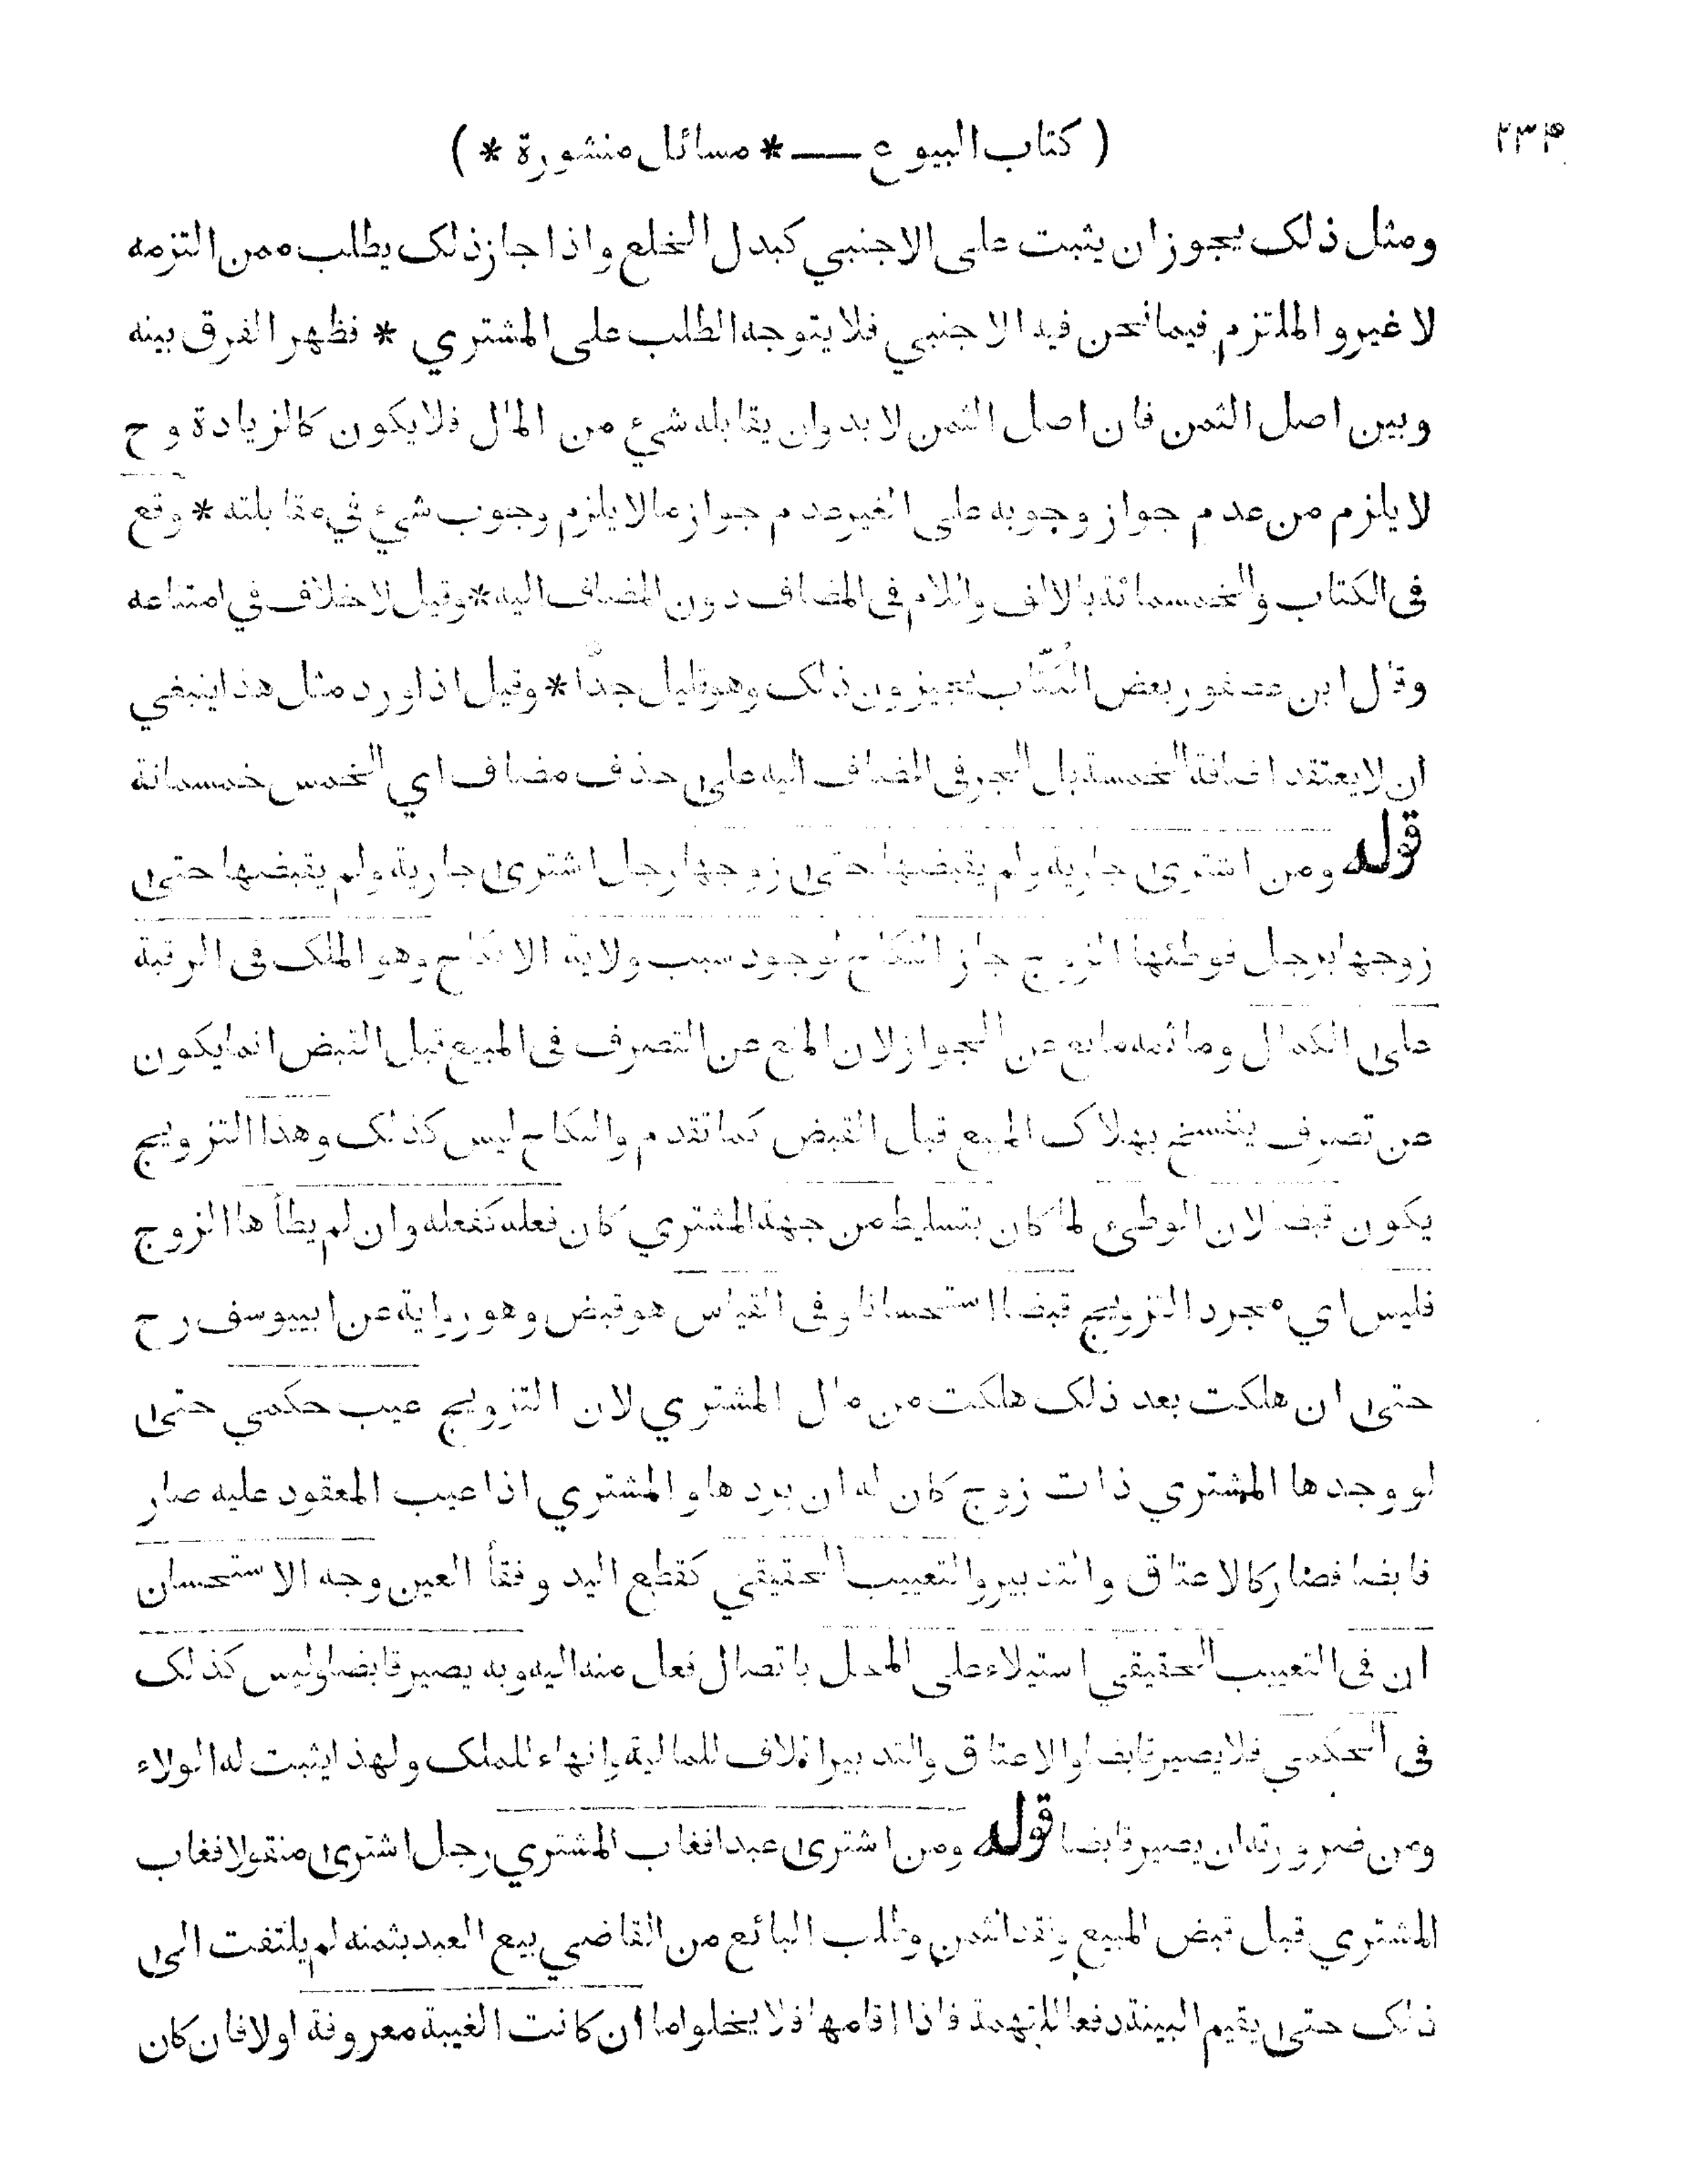 ( كتاب البيوع — * مسائل منثورة * )
ومثل ذلك يجوز ان يثبت على الاجنبي كبدل الخلع واذا جاز ذلك يطلب ممن التزمه
لا غير والملتزم فيما نحن فيه الاجنبي فلا يتوجه الطلب على المشتري * فظهر الفرق بينه
وبين اصل الثمن فان اصل الثمن لا بد وان يقابله شيء من المال فلا يكون كالزيادة وح
لا يلزم من عدم جواز وجوبه على الغير عدم جواز ما لا يلزم وجوب شيء في مقابلته * وقع
في الكتاب والخمسمائة بالالف واللام في المضاف دون المضاف اليه * وقيل لا خلاف في امتناعه
وقال ابن عصفور بعض الكُتّاب يجيزون ذلك وهو قليل جدًّا * وقيل اذا ورد مثل هذا ينبغي
ان لا يعتقد اضافة الخمسة بل الجر في المضاف اليه على حذف مضاف اي الخمس خمسمائة
قوله ومن اشترى جارية ولم يقبضها حتى زوجها رجل اشترى جارية ولم يقبضها حتى
زوجها برجل فوطئها الزوج جاز النكاح لوجود سبب ولاية الانكاح وهو الملك في الرقبة
على الكمال وما ثمه مانع عن الجواز لان المانع عن التصرف في المبيع قبل القبض انما يكون
عن تصرف ينفسخ بهلاك المبيع قبل القبض كما تقدم والنكاح ليس كذلك وهذا التزويج
يكون قبضا لان الوطىء لما كان بتسليط من جهة المشتري كان فعله كفعله وان لم يطأها الزوج
فليس اي مجرد التزويج قبضا استحسانا وفي القياس هو قبض وهو رواية عن ابييوسف رح
حتى ان هلكت بعد ذلك هلكت من مال المشتري لان التزويج عيب حكمي حتى
لو وجدها المشتري ذات زوج كان له ان يردها والمشتري اذا عيب المعقود عليه صار
قابضا فصار كالاعتاق والتدبير والتعييب الحقيقي كقطع اليد وفقأ العين وجه الاستحسان
ان في التعييب الحقيقي استيلاء على المحل باتصال فعل منه اليه وبه يصير قابضا وليس كذلك
في الحكمي فلا يصير قابضا والاعتاق والتدبير اتلاف للمالية وانهاء للملك ولهذا يثبت له الولاء
ومن ضرورته ان يصير قابضا قوله ومن اشترى عبدا فغاب المشتري رجل اشترى منقولا فغاب
المشتري قبل قبض المبيع ونقد الثمن وطلب البائع من القاضي بيع العبد بثمنه لم يلتفت الى
ذلك حتى يقيم البينة دفعا للتهمة فاذا اقامها فلا يخلو اما ان كانت الغيبة معروفة اولا فان كان